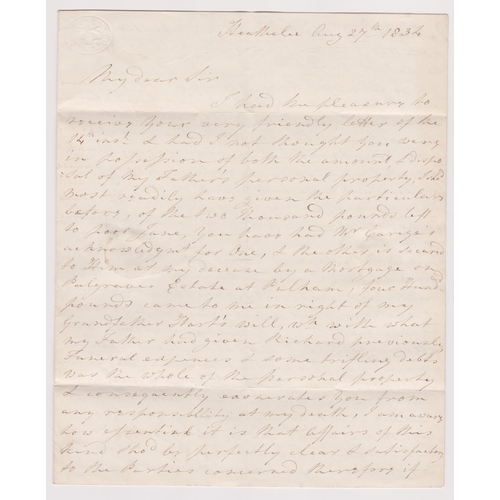 Aug 27th 1832
My dear Sir
I had the pleasure to
receive your very friendly letter of the
14th inst. & had I not thought you were
in possession of both the amount & dispo
sal of my Father's personal property, I shd
most readily have given the particulars
before, of the two thousand pounds left
to poor Jane, you have had Mr
acknowledgmt for One, & the other is secured
to Him at my decease by a Mortgage on
Estate at Pulham, four thousd
pounds came to me in right of my
Grandfather Hart's will, wh with what
my Father had given Richard previously
Funeral expences & some trifling debts
was the whole of the personal property
& consequently exonerates you from
any responsibility at my death, I am aware
how essential it is that affairs of this
kind shd be perfectly clear & satisfactory
to the Parties concerned therefore if